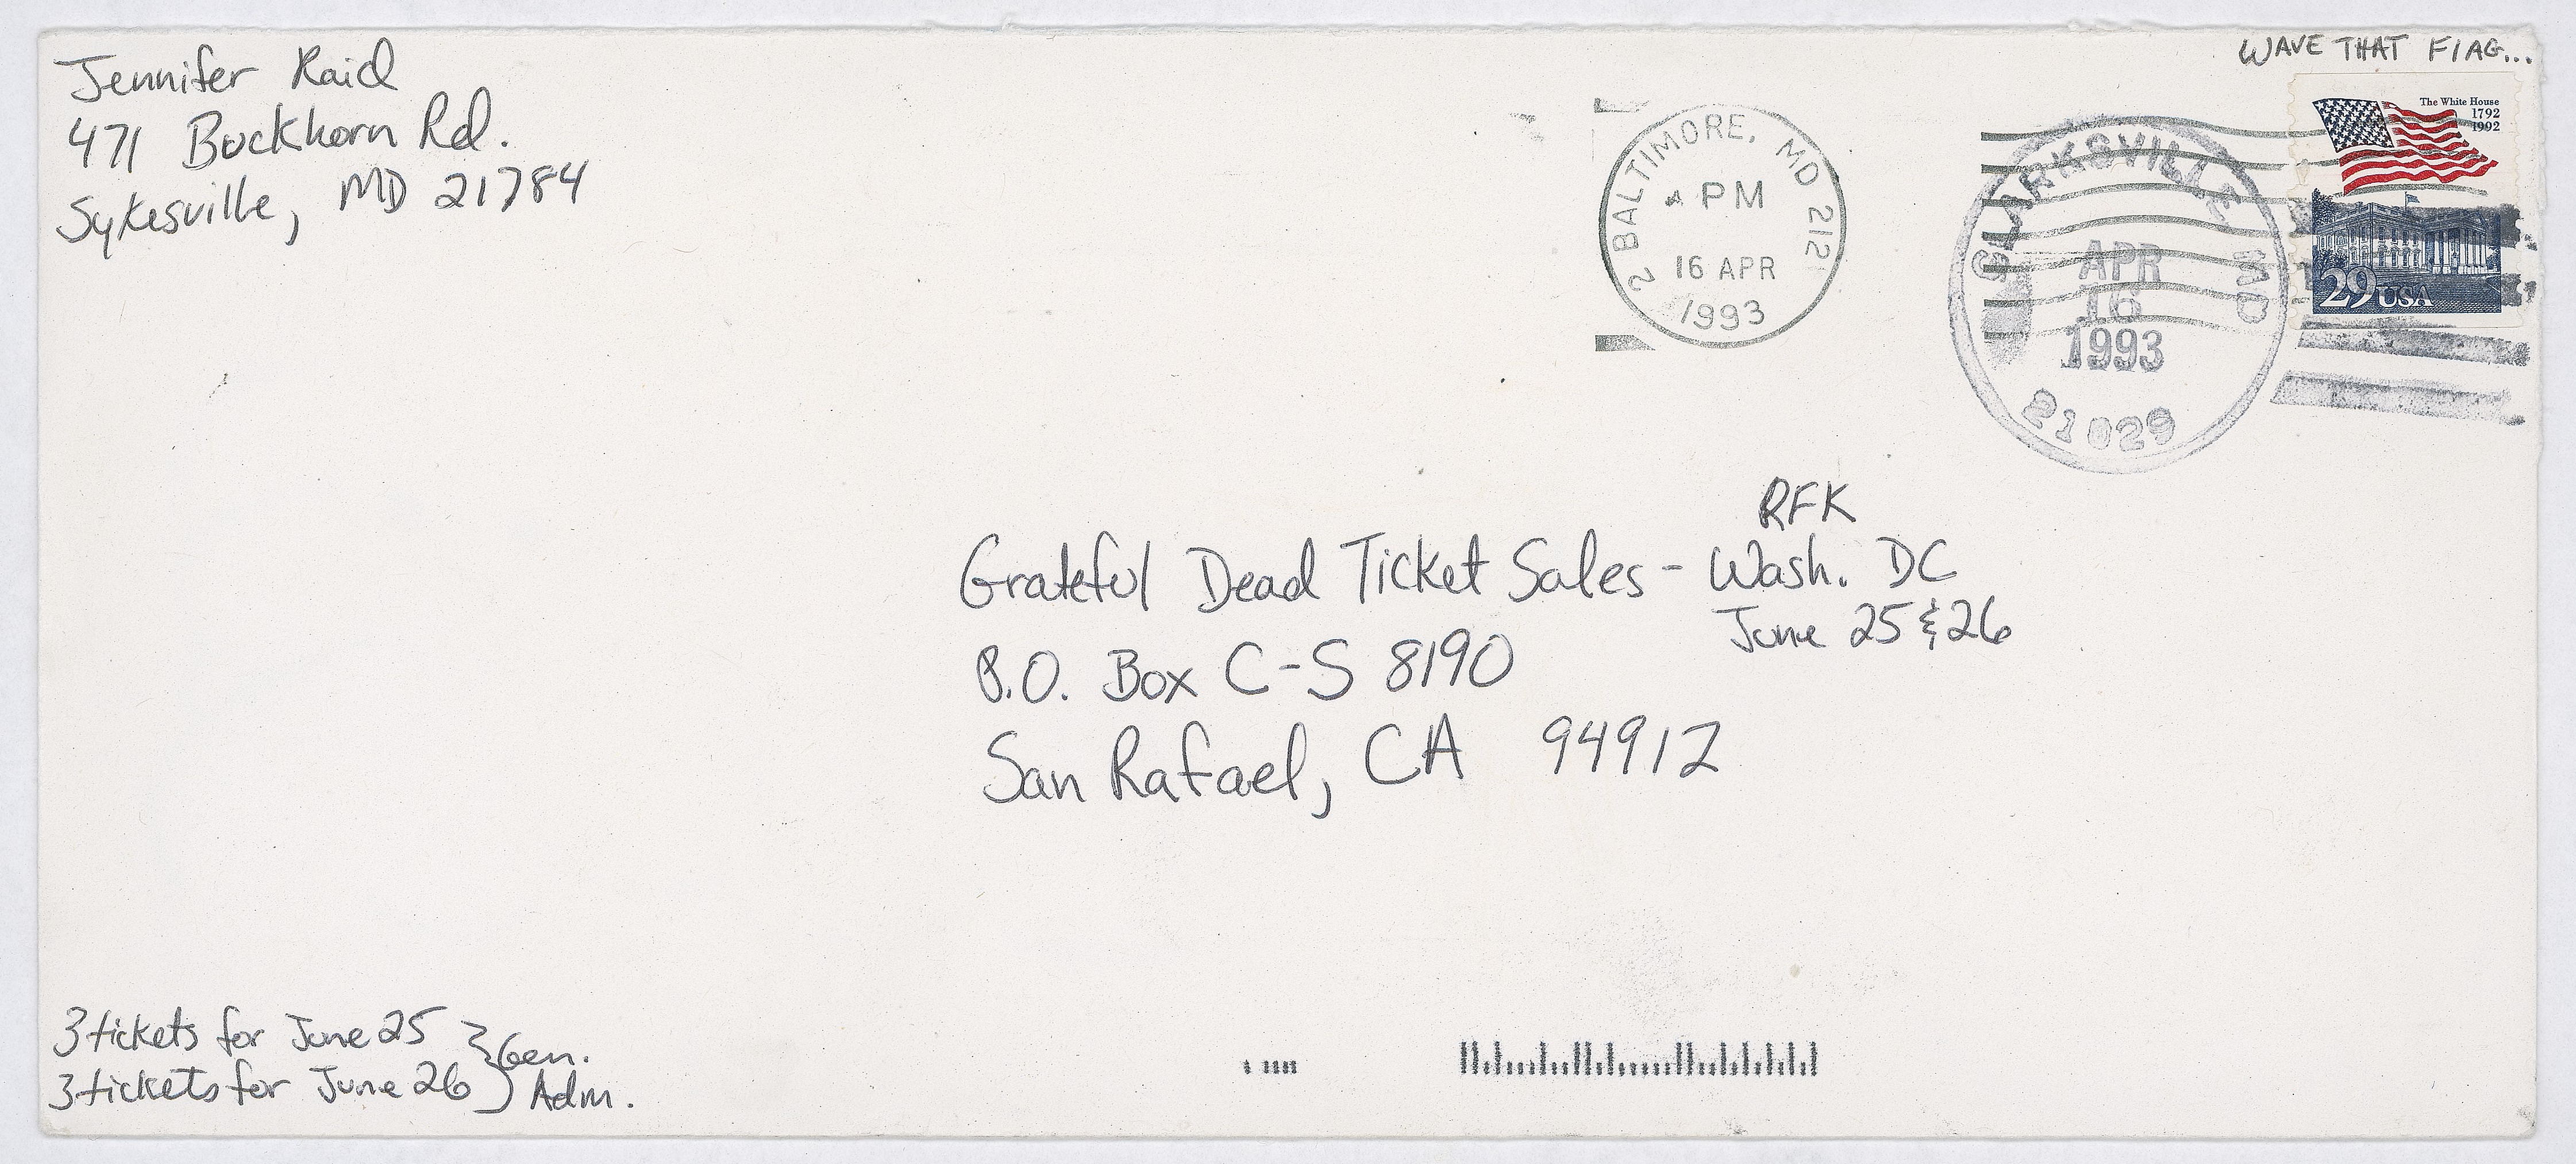 Jennifer Raid
471 Buckhorn Rd.
Sykesville, MD 21784
WAVE THAT FLAG...
The White House
1792
1992
29 USA
2 BALTIMORE, MD 212
PM
16 APR
1993
CLARKSVILLE MD
APR
16
1993
21029
RFK
Grateful Dead Ticket Sales - Wash. DC
June 25 & 26
P.O. Box C-S 8190
San Rafael, CA 94912
3 tickets for June 25 } Gen.
3 tickets for June 26 } Adm.